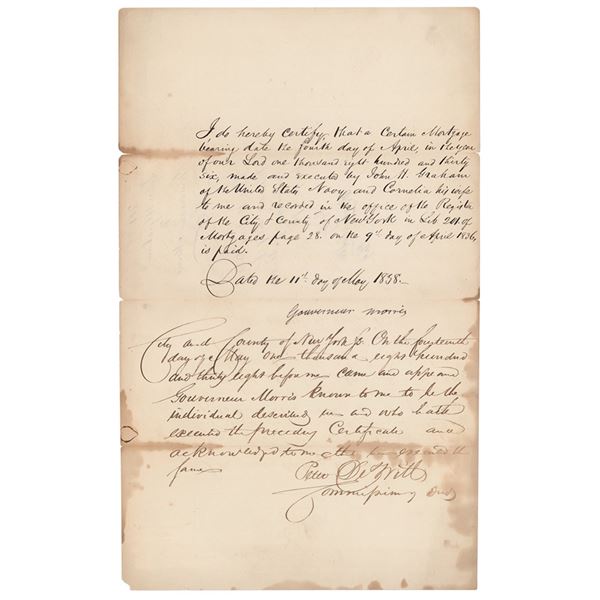 I do hereby certify that a Certain Mortgage
bearing date the fourth day of April, in the year
of our Lord one thousand eight hundred and thirty
six, made and executed by John H. Graham
of the United States Navy and Cornelia his wife
to me and recorded in the office of the Register
of the City & County of New York in Lib 201 of
Mortgages page 28. on the 9th day of April 1836,
is paid.
Dated the 11th day of May 1838.
Gouverneur Morris
City and County of New York Ss. On the
day of May One thousand eight hundred
and thirty eight before me came and appeared
Gouverneur Morris known to me to be the
individual described in and who hath
executed the preceding Certificate and
acknowledged to me that he executed the
same
Peter DeWitt
Commissioner of Deeds